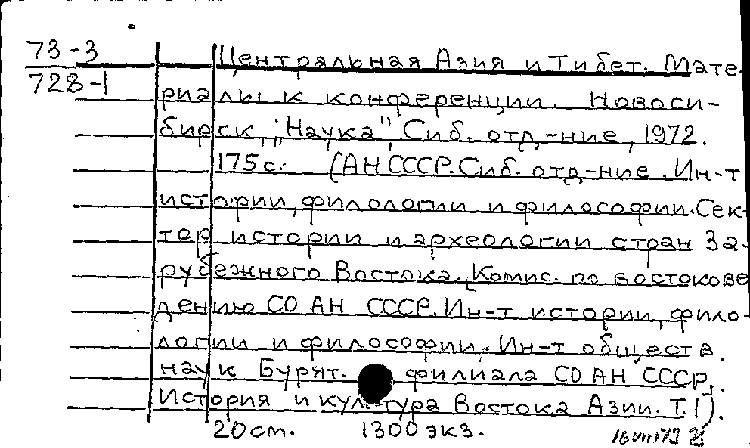 73-3
728-1
Центральная Азия и Тибет. Мате-
риалы к конференции. Новоси-
бирск, "Наука", Сиб. отд-ние, 1972.
175 с. (АН СССР. Сиб. отд-ние. Ин-т
истории, филологии и философии. Сек-
тор истории и археологии стран За-
рубежного Востока. Комис. по востокове
дению СО АН СССР. Ин-т истории, фило-
логии и философии. Ин-т обществ.
наук Бурят. филиала СО АН СССР.
История и культура Востока Азии. Т.1).
20 см. 1300 экз.